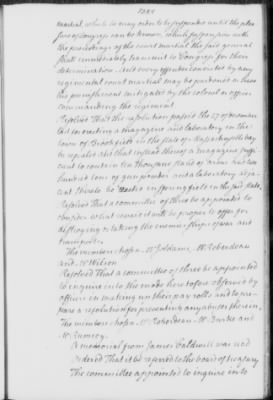 martial which he may order to be suspended until the plea
sure of Congress can be known, which suspension with
the proceedings of the court martial the said general
shall immediately transmit to Congress for their
determination. And every offender convicted by any
regimental court martial may be pardoned or have
his punishment mitigated by the colonel or officer
commanding the regiment
Resolved That the resolution passed the 27 of december
last for erecting a magazine and laboratory in the
town of Brookfield in the state of Massachusetts bay
be repealed and that instead thereof a magazine suffi
cient to contain ten thousand stand of arms and two
hundred tons of gunpowder and a laboratory adja
cent thereto be erected in Springfield in the said state.
Resolved That a committee of three be appointed to
consider what reward it will be proper to offer for
destroying or taking the enemy's ships of war and
transports.
The members chosen Mr Adams, Mr Roberdeau
and Mr Wilson
Resolved That a committee of three be appointed
to enquire into the mode heretofore observed by
officers in making up their pay rolls and to pre
pare a resolution for preventing any abuses therein.
The members chosen Mr Roberdeau Mr Burke and
Mr Rumsey
A memorial from James Caldwell was read
Ordered That it be referred to the board of treasury
The committee appointed to enquire into